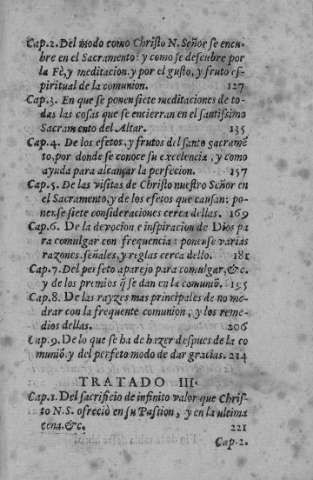 Cap.2. Del modo como Christo N. Señor se encu-
bre en el Sacramento: y como se descubre por
la Fè, y meditacion, y por el gusto, y fruto es-
piritual de la comunion. 127
Cap.3. En que se ponen siete meditaciones de to-
das las cosas que se encierran en el santissimo
Sacramento del Altar. 135
Cap.4. De los efetos, y frutos del santo sacramẽ
to, por donde se conoce su excelencia, y como
ayuda para alcançar la perfecion. 157
Cap.5. De las visitas de Christo nuestro Señor en
el Sacramento, y de los efetos que causan: po-
nense siete consideraciones cerca dellas. 169
Cap.6. De la devocion e inspiracion de Dios pa
ra comulgar con frequencia: ponense varias
razones, señales, y reglas cerca dello. 181
Cap.7. Del perfeto aparejo para comulgar, &c.
y de los premios q̃ se dan en la comuniõ. 195
Cap.8. De las rayzes mas principales de no me-
drar con la frequente comunion, y los reme-
dios dellas. 206
Cap.9. De lo que se ha de hazer despues de la co
muniõ y del perfeto modo de dar gracias. 214
TRATADO III.
Cap.1. Del sacrificio de infinito valor que Chris-
to N.S. ofreciò en su Passion, y en la ultima
cena. &c. 221
Cap.2.